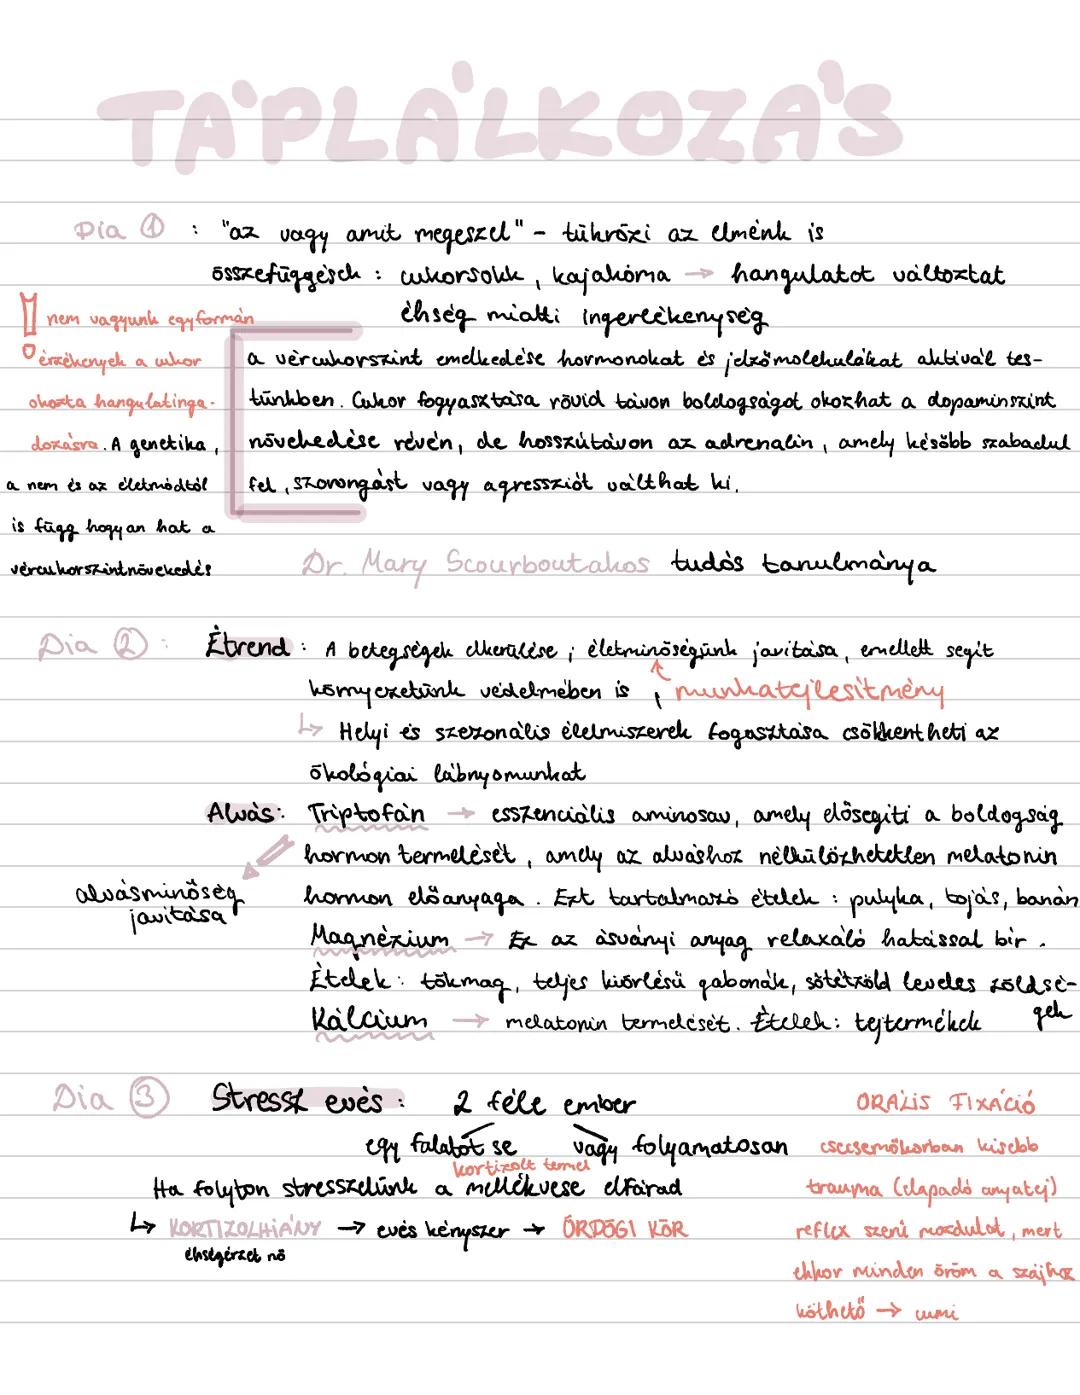 TÁPLÁLKOZÁS
Dia ① : "az vagy amit megeszel" - tükrözi az elménk is
összefüggések : cukorsokk, kajakóma → hangulatot változtat
éhség miatti ingerlékenység
! nem vagyunk egyformán
érzékenyek a cukor
okozta hangulatinga-
dozásra. A genetika,
a nem és az életmódtól
is függ hogyan hat a
vércukorszintnövekedés
a vércukorszint emelkedése hormonokat és jelzőmolekulákat aktivál tes-
tünkben. Cukor fogyasztása rövid távon boldogságot okozhat a dopaminszint
növekedése révén, de hosszútávon az adrenalin, amely később szabadul
fel, szorongást vagy agressziót válthat ki.
Dr. Mary Scourboutakos tudós tanulmánya
Dia ② : Étrend : A betegségek elkerülése ; életminőségünk javítása, emellett segít
környezetünk védelmében is , munkatejlesítmény
↳ Helyi és szezonális élelmiszerek fogasztása csökkentheti az
ökológiai lábnyomunkat
Alvás: Triptofán → esszenciális aminosav, amely elősegíti a boldogság
hormon termelését, amely az alváshoz nélkülözhetetlen melatonin
alvásminőség
javítása
hormon előanyaga. Ezt tartalmazó ételek : pulyka, tojás, banán
Magnézium → Ez az ásványi anyag relaxáló hatással bír.
Ételek: tökmag, teljes kiőrlésű gabonák, sötétzöld leveles zöldsé-
gek
Kálcium → melatonin termelését. Ételek: tejtermékek
Dia ③ Stressz evés : 2 féle ember
egy falatot se vagy folyamatosan
kortizolt termel
Ha folyton stresszelünk a mellékvese elfárad
↳ KORTIZOLHIÁNY → evés kényszer → ÖRDÖGI KÖR
éhségérzet nő
ORÁLIS FIXÁCIÓ
csecsemőkorban kisebb
trauma (elapadó anyatej)
reflex szerű mozdulat, mert
ekkor minden öröm a szájhoz
köthető → cumi